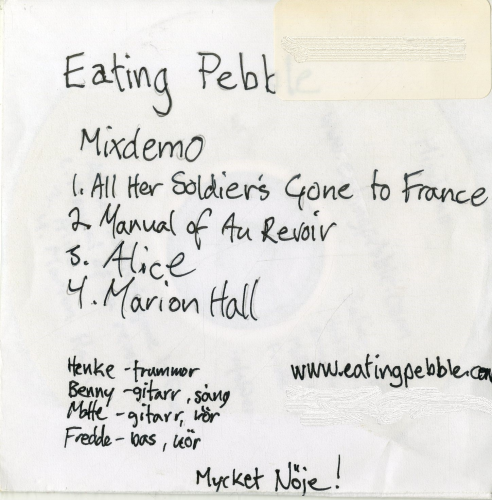 Eating Pebble
Mixdemo
1. All Her Soldier's Gone to France
2. Manual of Au Revoir
3. Alice
4. Marion Hall
Henke - trummor
Benny - gitarr, sång
Motte - gitarr, kör
Fredde - bas, kör
www.eatingpebble.com
Mycket Nöje!